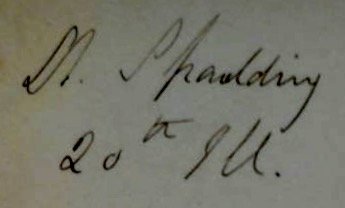 Dr. Spalding
20th Ill.